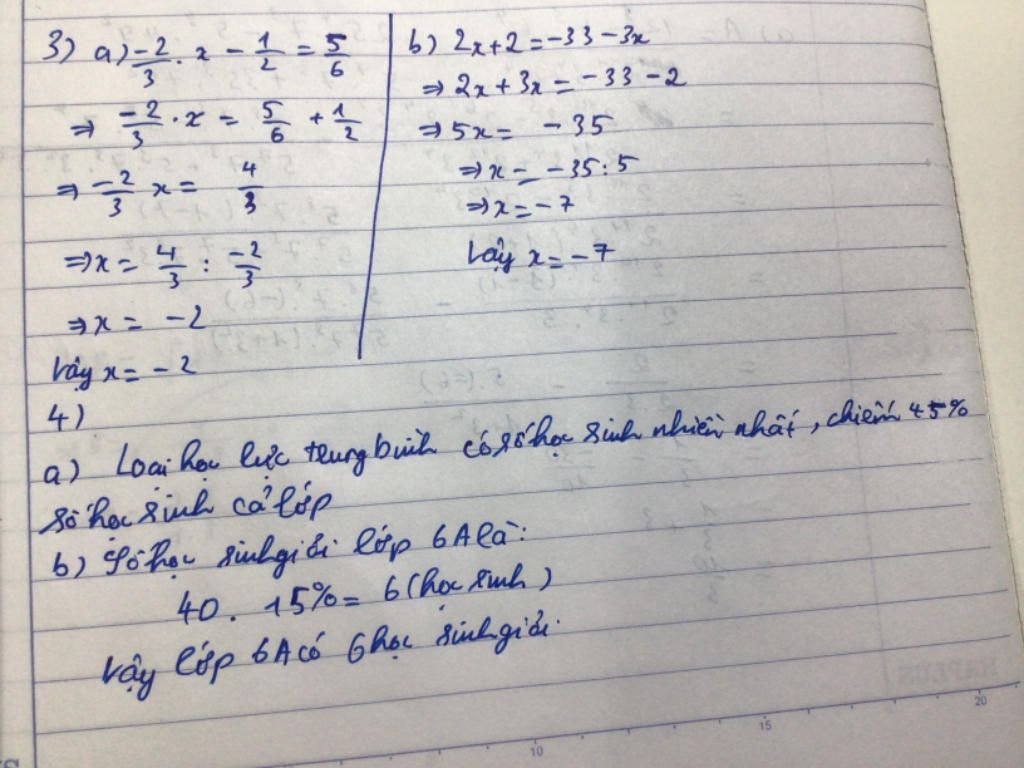 3) a) -2/3 . x - 1/2 = 5/6
⇒ -2/3 . x = 5/6 + 1/2
⇒ -2/3 x = 4/3
⇒ x = 4/3 : -2/3
⇒ x = -2
Vậy x = -2
b) 2x+2 = -33 - 3x
⇒ 2x + 3x = -33 - 2
⇒ 5x = -35
⇒ x = -35 : 5
⇒ x = -7
Vậy x = -7
4)
a) Loại học lực trung bình có số học sinh nhiều nhất, chiếm 45%
số học sinh cả lớp
b) Số học sinh giỏi lớp 6A là:
40 . 15% = 6 (học sinh)
Vậy lớp 6A có 6 học sinh giỏi.
10 15 20